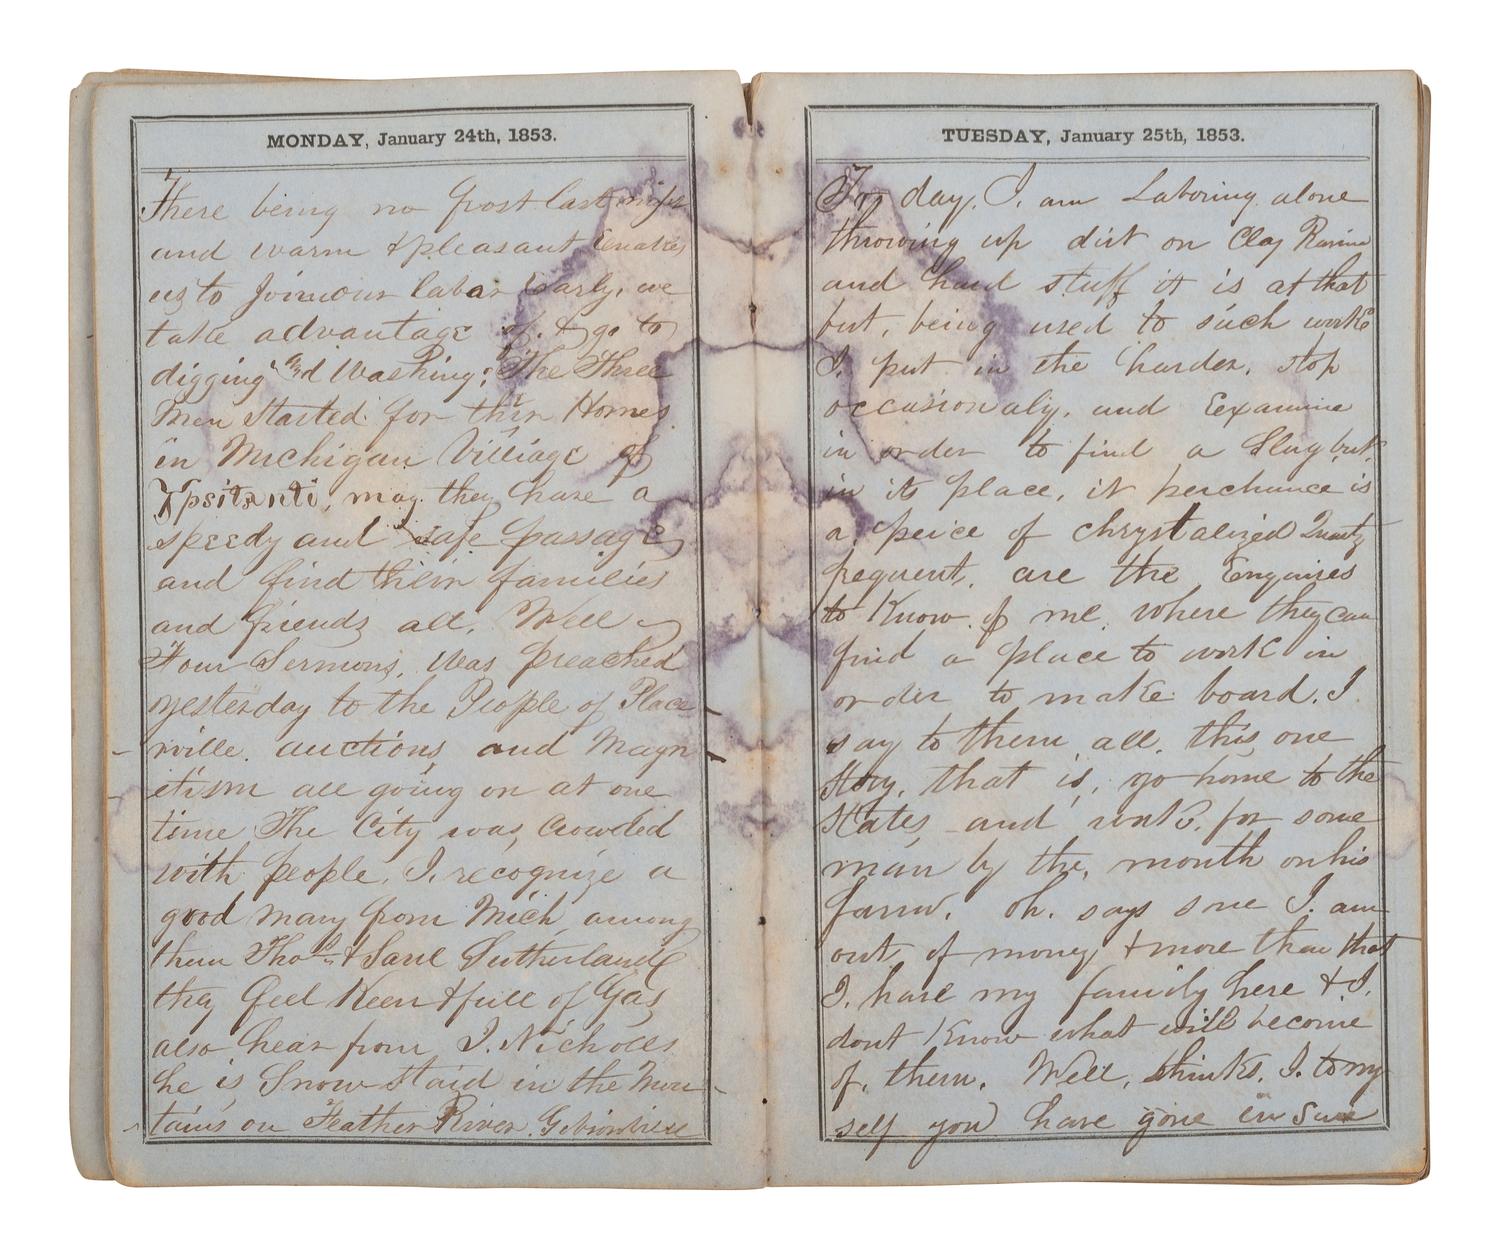 MONDAY, January 24th, 1853.
There being no frost last night
and warm & pleasant Enables
us to Join our labor Early, we
take advantage of. & go to
digging and Washing; The Three
Men Started for thir Homes
in Michigan Villiage of
Ypsilanti, may they have a
speedy and safe passage
and find their families
and friends all. Well
Four Sermons, was preached
yesterday to the People of Place
rville. auctions, and Magn
etism all going on at one
time The City was, Crowded
with people, I. recognize a
good many from Mich, among
them Thos. & Saul Sutherland
they feel Keen & full of Gas,
also hear from J. Nicholes
he is, Snow Staid in the Mou
tains on Feather River.
TUESDAY, January 25th, 1853.
To day. I. am Laboring alone
throwing up dirt on Clay Ravine
and hard stuff it is at that
but, being used to such work
I. put in the harder, stop
occasionaly. and Eexamine
in order to find a Slug but,
in its place, it perchance is
a peice of chrystalized Quartz
frequent, are the Enquires
to Know of me, where they can
find a place to work in
order to make board. I
say to them all, this one
Story, that is, go home to the
States and work. for some
man by the, month on his
farm. oh. says one I. am
out of money & more than that
I. have my family here & I.
dont Know what will become
of. them. Well, thinks. I. to my
self you have gone in Sure